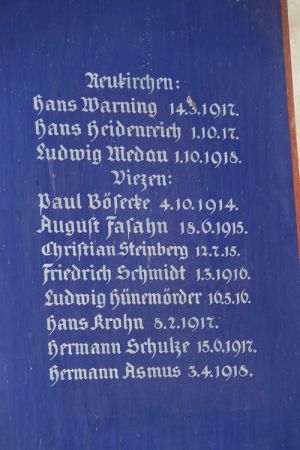 Neukirchen:
Hans Warning 14.3.1917.
Hans Heidenreich 1.10.17.
Ludwig Medau 1.10.1918.
Viezen:
Paul Bösecke 4.10.1914.
August Fasahn 18.6.1915.
Christian Steinberg 12.7.15.
Friedrich Schmidt 1.3.1916.
Ludwig Hünemörder 16.5.16.
Hans Krohn 8.2.1917.
Hermann Schulze 15.6.1917.
Hermann Asmus 3.4.1918.